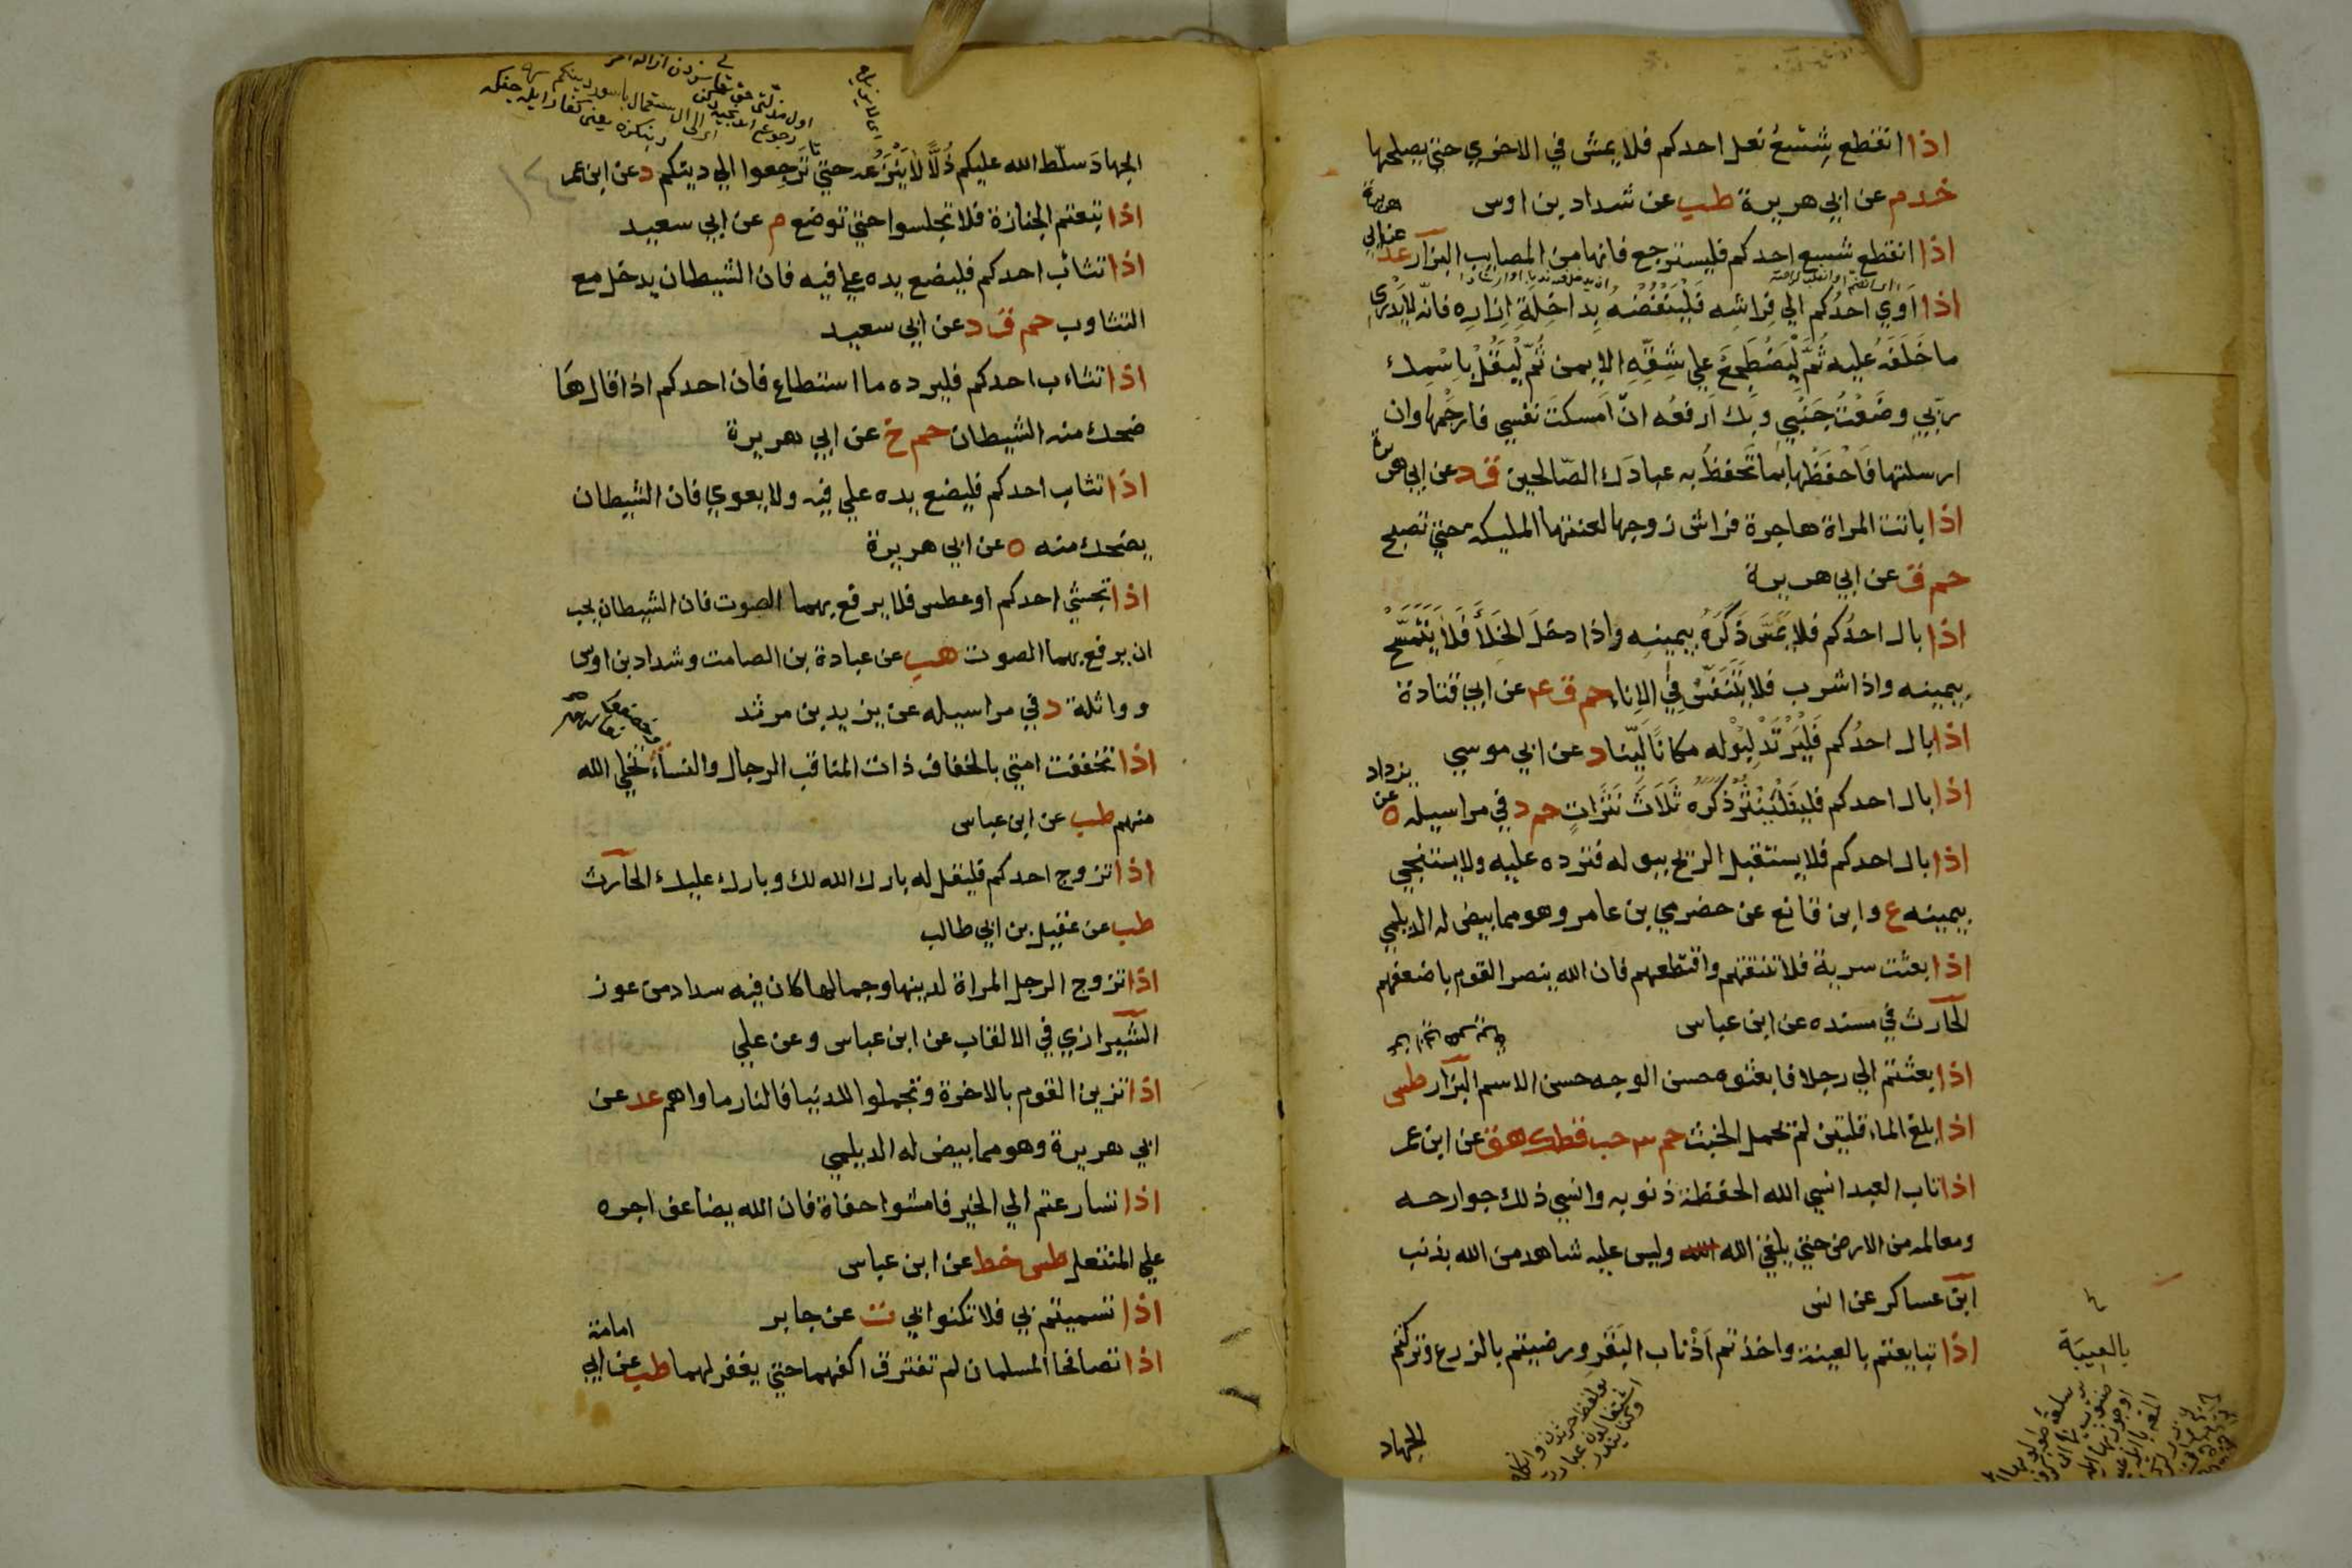 اذا انقطع شِسْعُ نعل احدكم فلا يمش في الاخري حتي يصلحها
خد م عن ابي هريرة طب عن شداد بن اوس
اذا انقطع شسع احدكم فليسترجع فانها من المصايب البزار عد عن ابي هريرة
اذا اَوَي احدُكم الي فِراشِه فَلْيَنْفُضْهُ بِداخِلةِ اِزارِه فانّه لا يَدْرِي
ما خَلَفَهُ عليه ثُمَّ لْيَضْطَجِعْ علي شِقِّهِ الايمن ثُمّ لْيَقُلْ بِاسْمِك
ربّي وضَعْتُ جَنْبِي وبِك اَرفعُه انْ اَمسكتَ نفسي فارحَمْها وان
ارسلتها فَاحْفَظْها بما تَحفظُ به عبادَك الصّالحين ق د عن ابي هريرة
اذا باتت المراة هاجرة فراش زوجها لعنتها المليكة حتي تصبح
حم ق عن ابي هريرة
اذا بال احدُكم فلا يَمَسَّ ذَكَرَهُ بيمينِه واذا دخلَ الخَلَاَ فَلَا يَتَمَسَّحْ
بيمينه واذا شرب فلا يَتَنَفَّسْ فِي الاِناءِ حم ق عه عن ابي قتادة
اذا بال احدُكم فَلْيَرْتَدْ لِبَوْلِه مكانًا لَيّنا د عن ابي موسي
اذا بال احدكم فليَنْتُرْ ذَكَرَهُ ثَلَاثَ نَتَرَاتٍ حم د في مراسيله ه عن يزداد
اذا بال احدكم فلا يستقبل الريح ببوله فترده عليه ولا يستنجي
بيمينه ع وابن قانع عن حضرمي بن عامر وهو مما بيض له الديلمي
اذا بعثت سرية فلا تنتقهم واقتطعهم فان الله ينصر القوم باضعفهم
الحارث في مسنده عن ابن عباس
اذا بعثتم الي رجلا فابعثوه حسن الوجه حسن الاسم البزار طس
اذا بلغ الماء قلتين لم يحمل الخبث حم حب قط ك هق عن ابن عمر
اذا تاب العبد انسي الله الحفظة ذنوبه وانسي ذلك جوارحه
ومعالمه من الارض حتي يلقي الله وليس عليه شاهد من الله بذنب
ابن عساكر عن انس
اذا تبايعتم بالعينة واخذتم اَذْناب البَقَرِ ورضيتم بالزرع وتركتم
الجهاد
الجهادَ سلّط الله عليكم ذُلًّا لَا يَنْزِعُه حتي تَرجِعوا الي دينكم د عن ابن عمر
اذا تبعتم الجنازة فلا تجلسوا حتي توضع م عن ابي سعيد
اذا تثائب احدكم فليضع يده علي فيه فان الشيطان يدخل مع
التثاوب حم ق د عن ابي سعيد
اذا تثاءب احدكم فليرده ما استطاع فان احدكم اذا قال هَا
ضحك منه الشيطان حم خ عن ابي هريرة
اذا تثايب احدكم فليضع يده علي فيه ولا يعوي فان الشيطان
يضحك منه ه عن ابي هريرة
اذا تجشي احدكم او عطس فلا يرفع بهما الصوت فان الشيطان يحب
ان يرفع بهما الصوت هب عن عبادة بن الصامت وشداد بن اوس
وواثلة د في مراسيله عن يزيد بن مرثد
اذا تخففت امتي بالخفاف ذات المناقب الرجال والنساء تخلي الله
منهم طب عن ابن عباس
اذا تزوج احدكم فليقل له بارك الله لك وبارك عليك الحارث
طب عن عقيل بن ابي طالب
اذا تزوج الرجل المراة لدينها وجمالها كان فيه سداد من عوز
الشيرازي في الالقاب عن ابن عباس وعن علي
اذا تزين القوم بالاخرة وتجملوا للدنيا فالنار ماواهم عد عن
ابي هريرة وهو مما بيض له الديلمي
اذا تسارعتم الي الخير فامشوا حفاة فان الله يضاعف اجره
علي المنتعل طس خط عن ابن عباس
اذا تسميتم بي فلا تكنوا بي ت عن جابر
اذا تصافحا المسلمان لم تفترق اكفهما حتي يغفر لهما طب عن ابي امامة